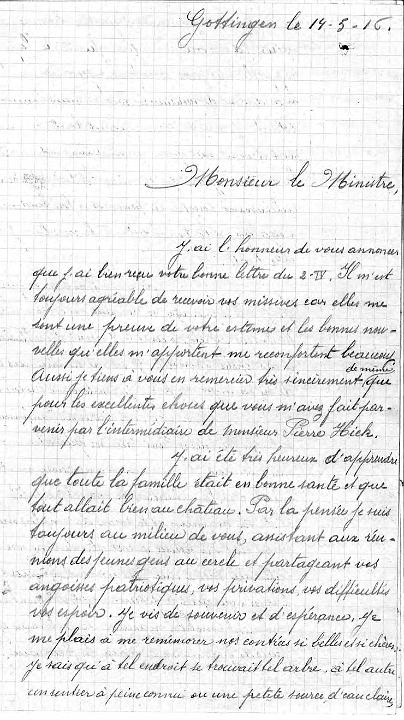 Gottingen le 14-5-16.
Monsieur le Ministre,
J'ai l'honneur de vous annoncer
que j'ai bien reçu votre bonne lettre du 2-IV. Il m'est
toujours agréable de recevoir vos missives car elles me
sont une preuve de votre estime et les bonnes nou-
velles qu'elles m'apportent me reconfortent beaucoup
Aussi je tiens à vous en remercier très sincèrement, de même que
pour les excellentes choses que vous m'avez fait par-
venir par l'intermédiaire de Monsieur Pierre Hick.
J'ai été très heureux d'apprendre
que toute la famille était en bonne santé et que
tout allait bien au chateau. Par la pensée je suis
toujours au milieu de vous, assistant aux réu-
nions des jeunes gens au cercle et partageant vos
angoisses patriotiques, vos privations, vos difficultés
vos espoir. Je vis de souvenir et d'espérance, je
me plais à me remémorer nos contrées si belles et si chères.
Je sais qu'à tel endroit se trouvait tel arbre, à tel autre
un sentier à peine connu ou une petite source d'eau claire,